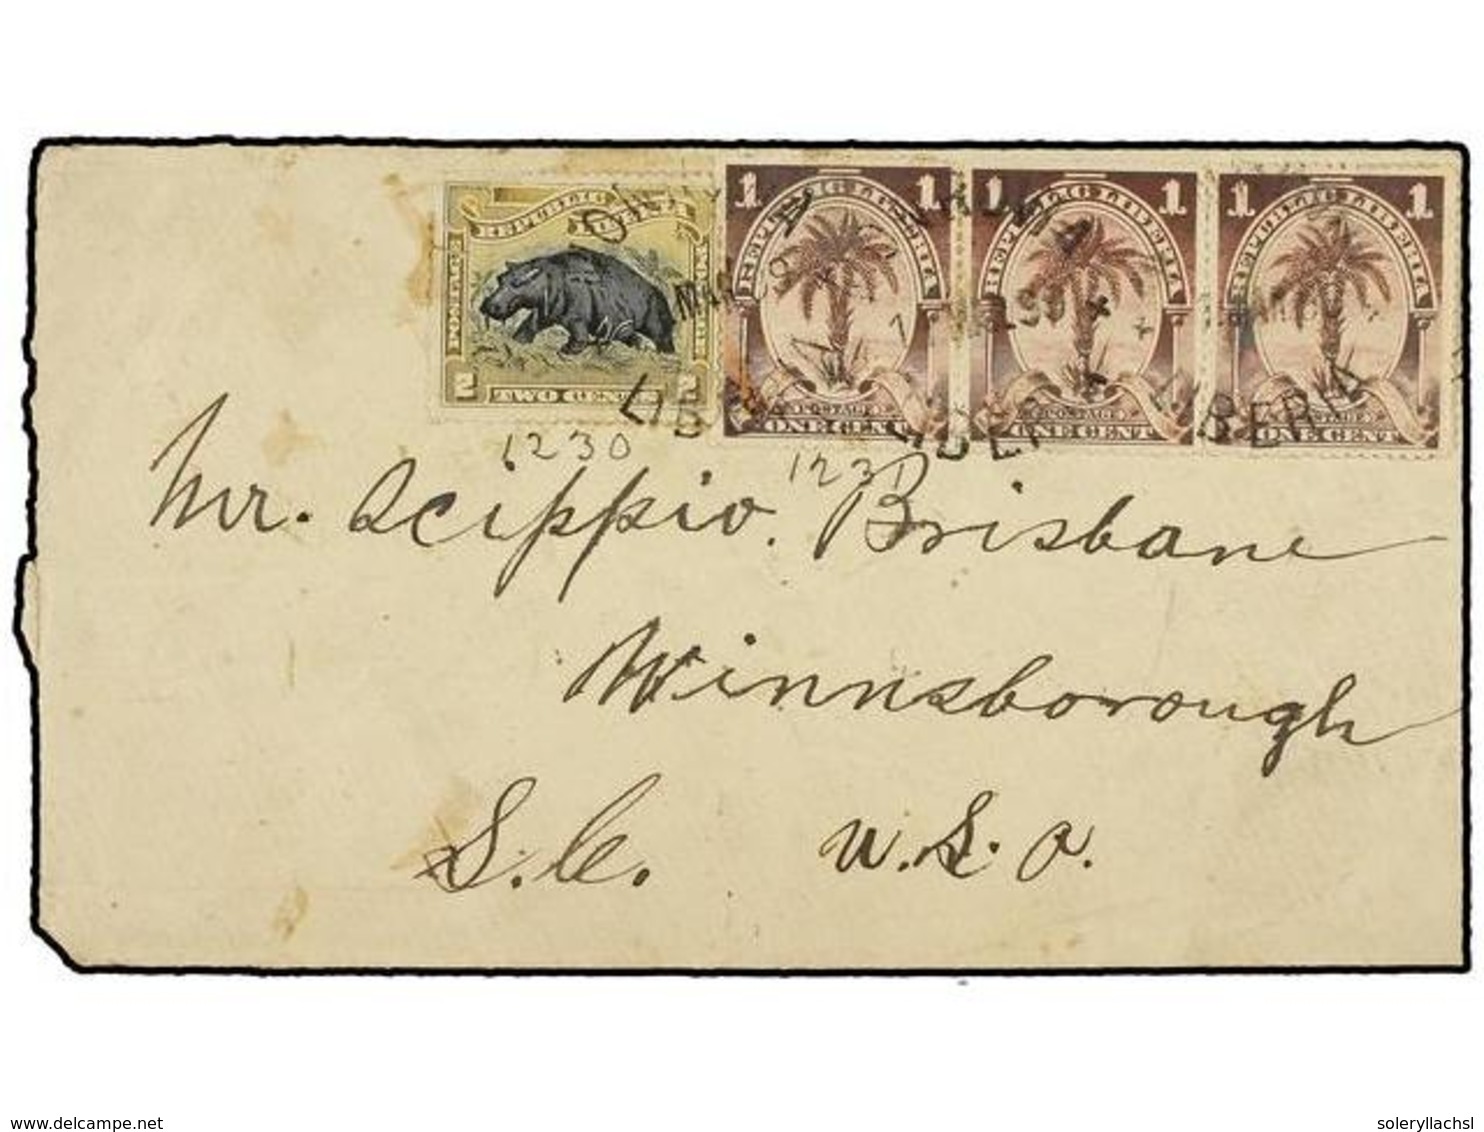 2 REPUBLIC LIBERIA 2
POSTAGE
2 TWO CENTS 2
1 REPUBLIC LIBERIA 1
POSTAGE
ONE CENT
1 REPUBLIC LIBERIA 1
POSTAGE
ONE CENT
1 REPUBLIC LIBERIA 1
POSTAGE
ONE CENT
LIBERIA
1230
1231
Mr. Scippio. Brisbane
Winnsborough
S. C. U. S. a.
www.delcampe.net
soleryllachsl